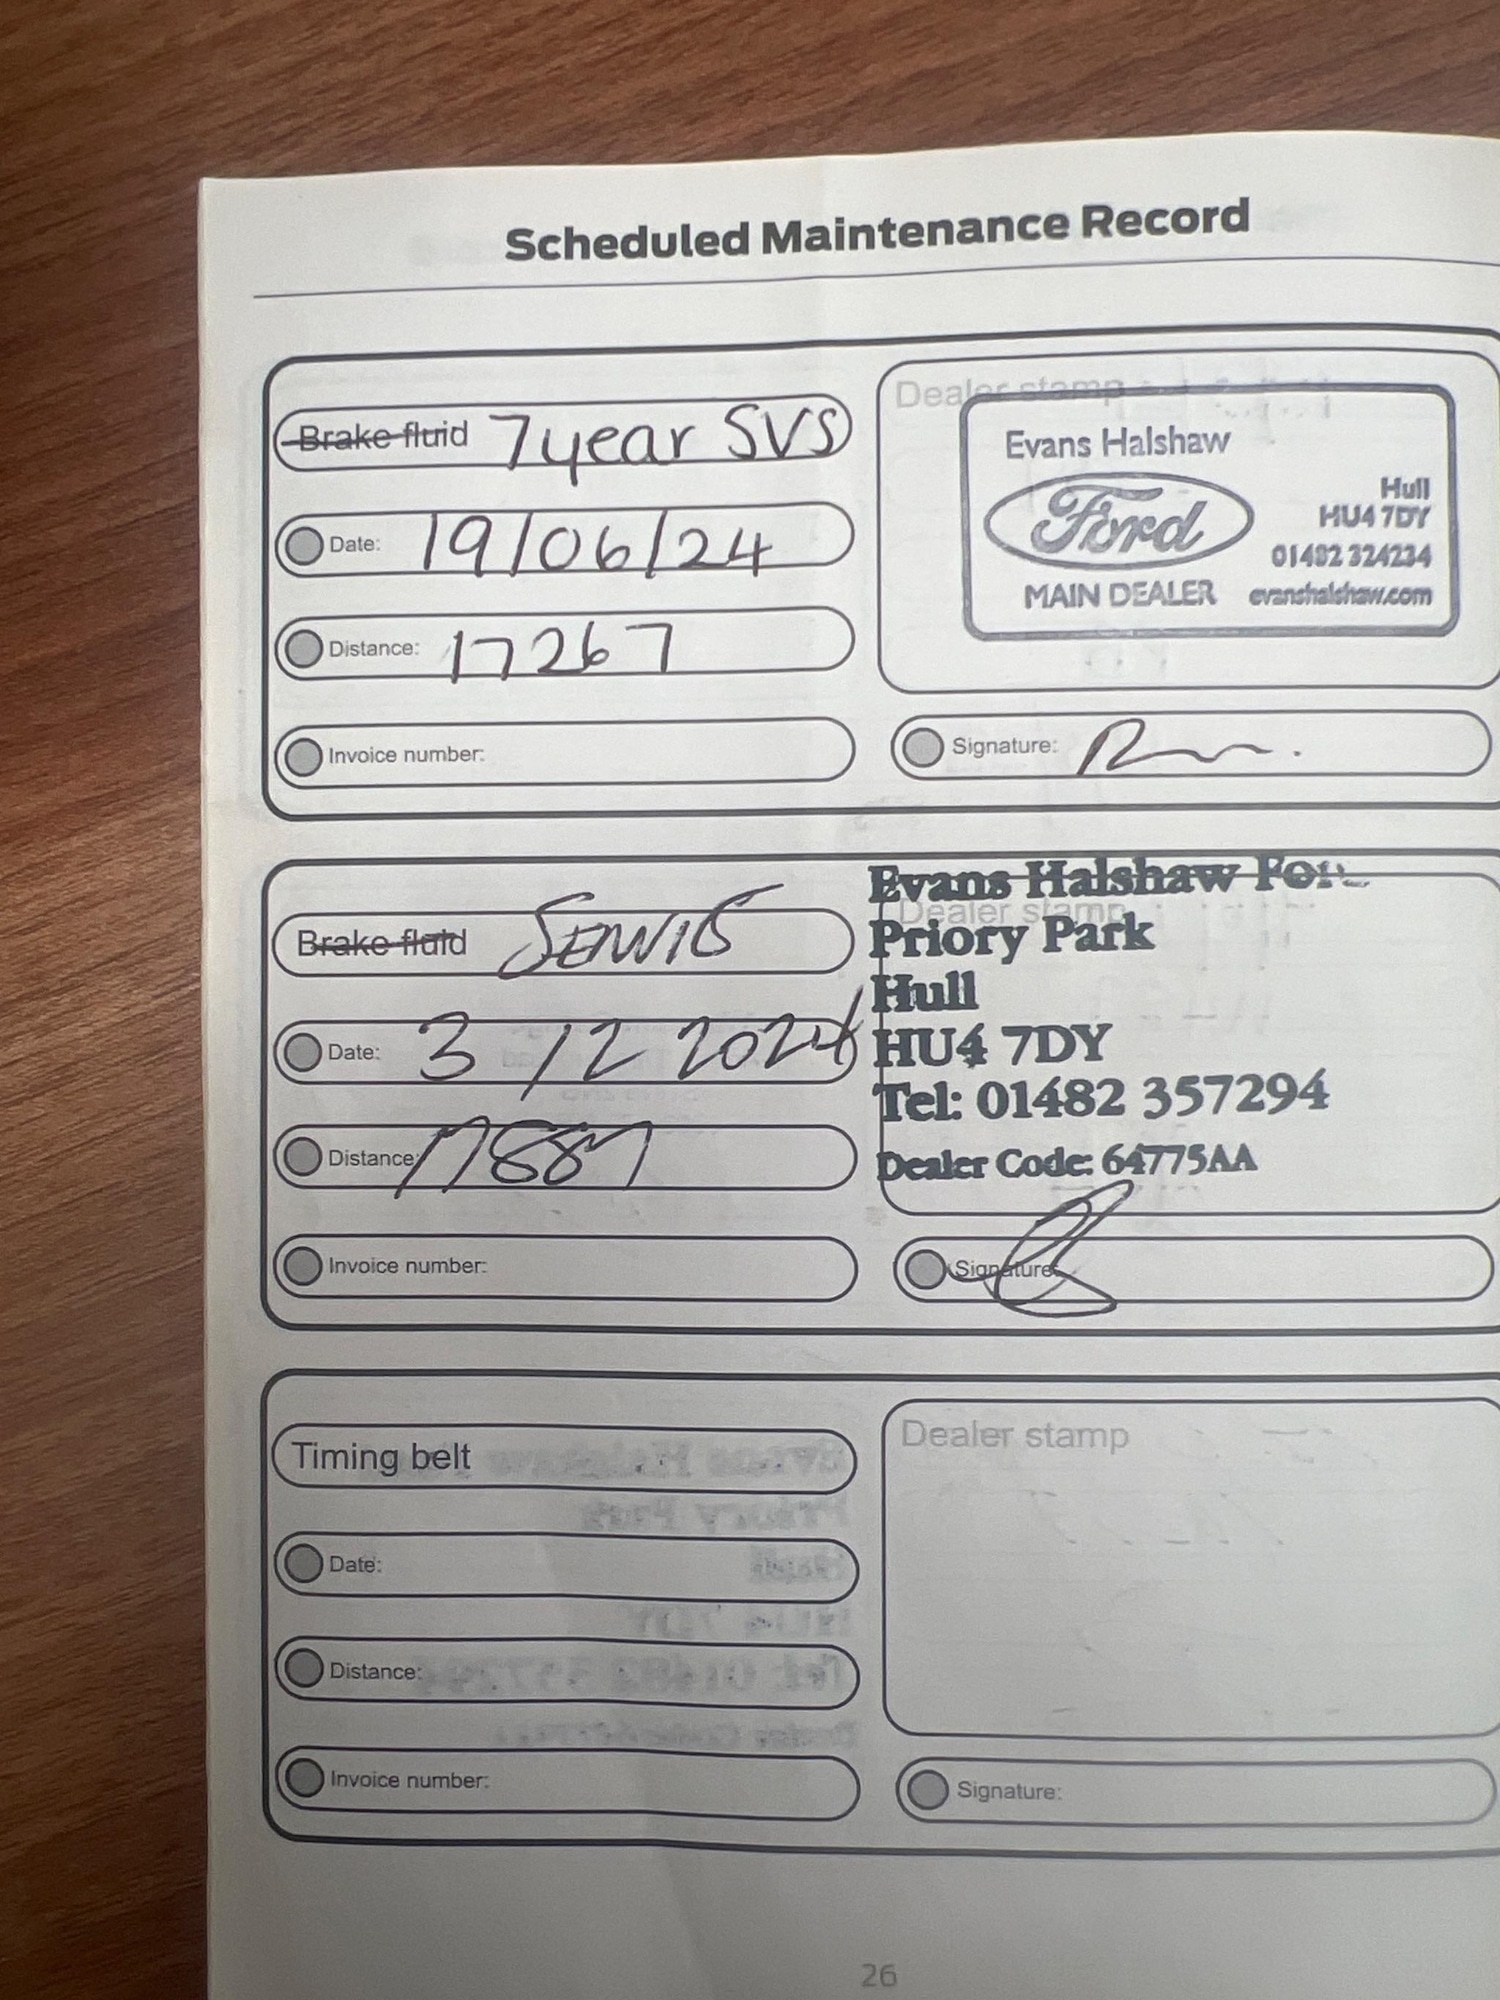 Scheduled Maintenance Record
Brake fluid 7 year SVS
Dealer stamp
Evans Halshaw
Ford
Hull
HU4 7DY
01482 324234
MAIN DEALER evanshalshaw.com
Date: 19/06/24
Distance: 17267
Invoice number:
Signature:
Brake fluid Service
Evans Halshaw
Dealer stamp
Priory Park
Hull
HU4 7DY
Tel: 01482 357294
Dealer Code: 64775AA
Date: 3 12 2024
Distance: 17887
Invoice number:
Signature:
Timing belt
Dealer stamp
Date:
Distance:
Invoice number:
Signature:
26